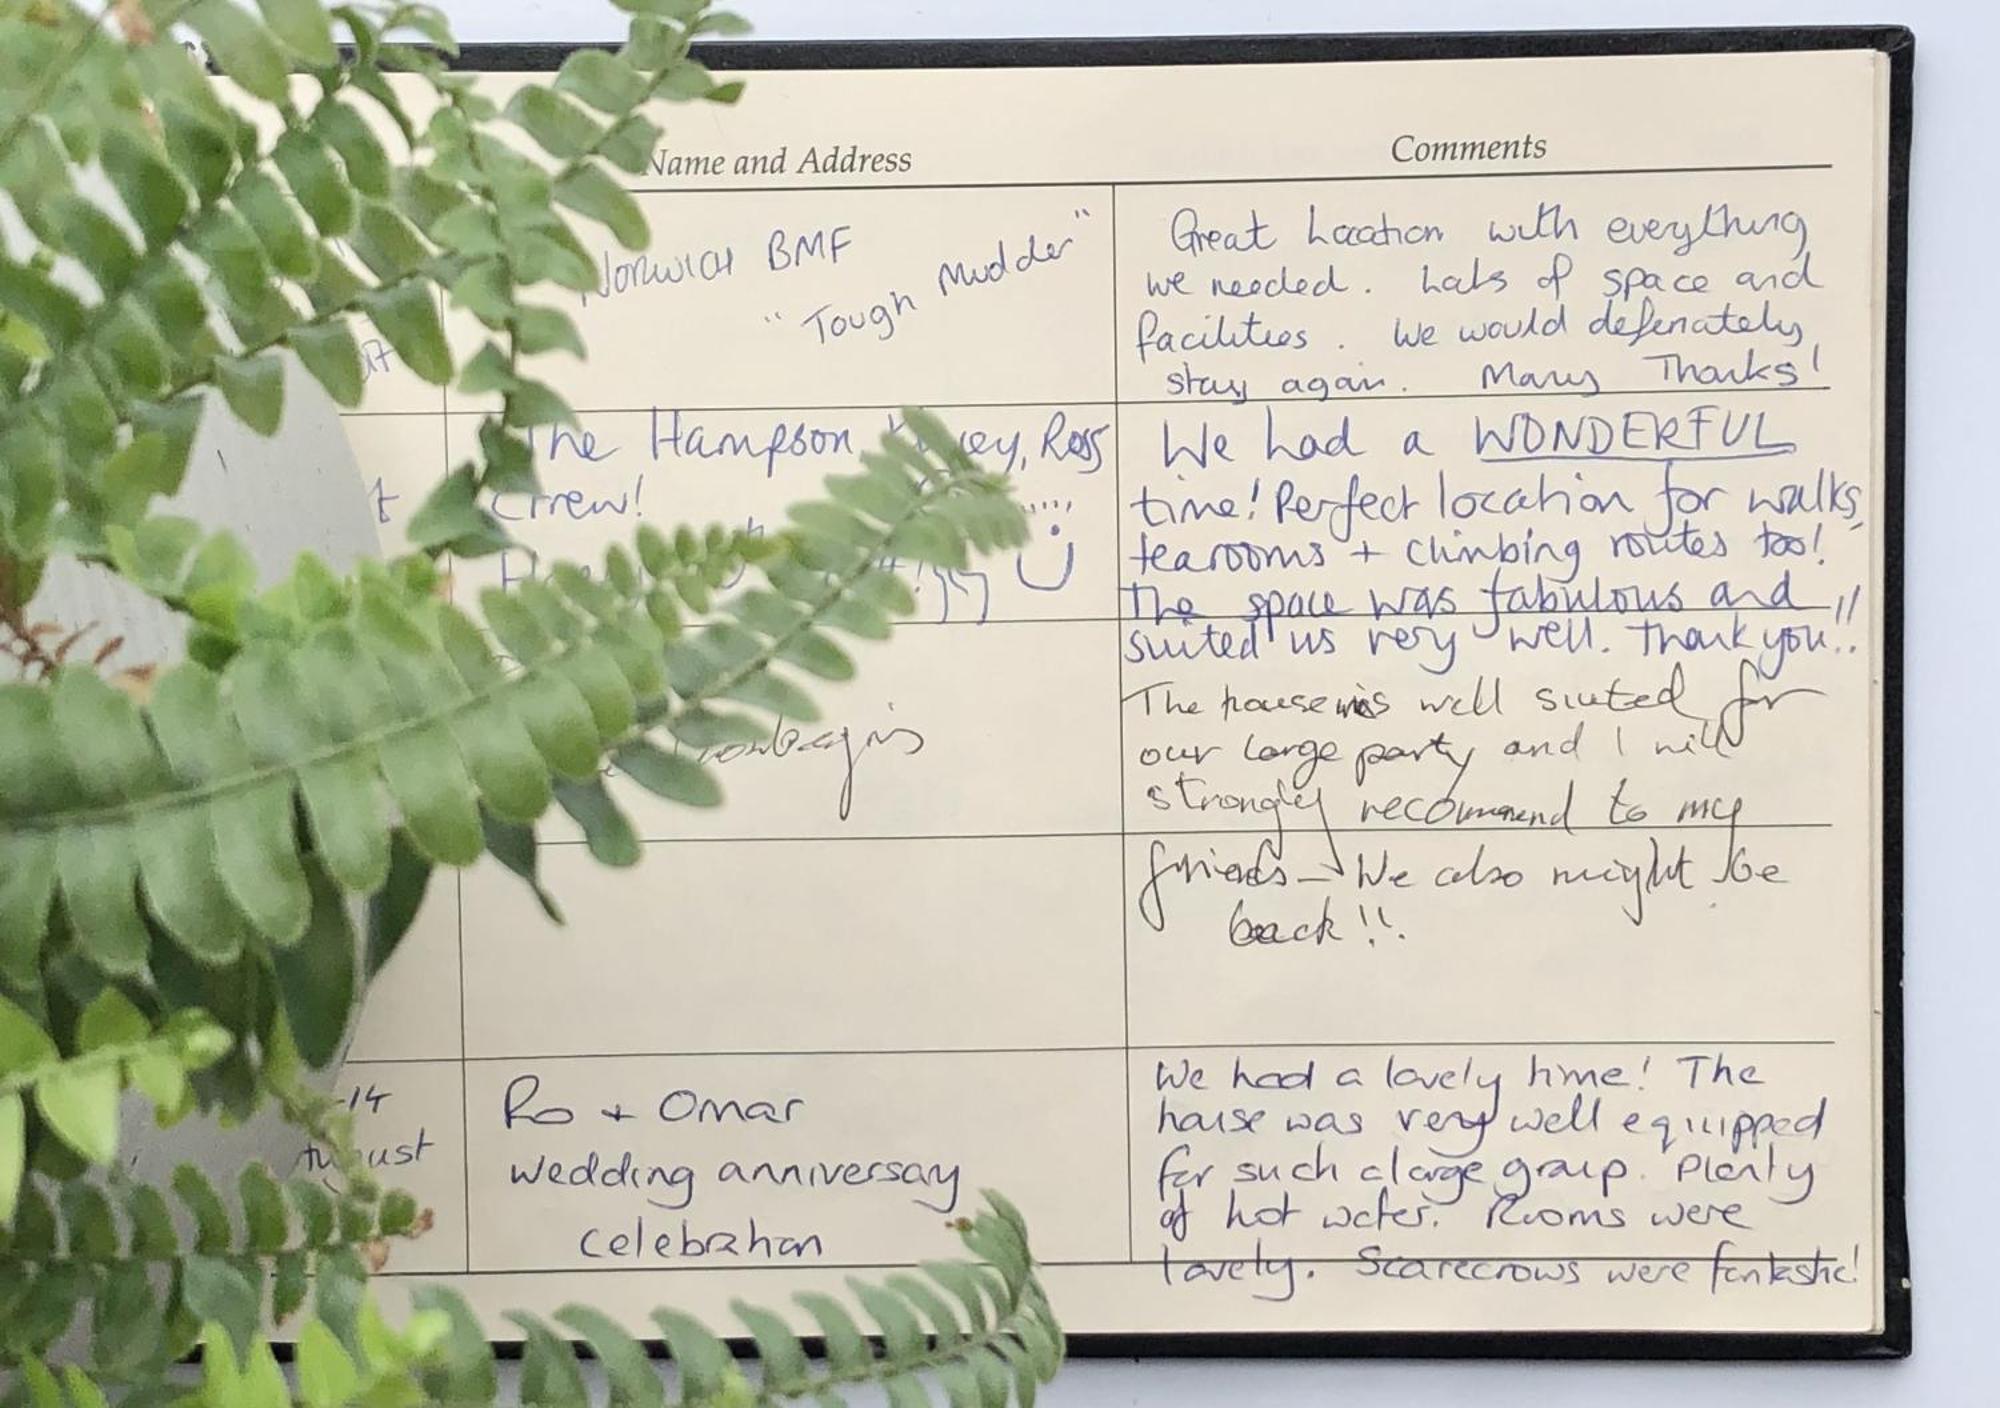 Name and Address
Comments
Norwich BMF
"Tough Mudder"
Great Location with everything
we needed. Lots of space and
facilities. We would definately
stay again. Many Thanks!
The Hampson, Ross
Crew!
We had a WONDERFUL
time! Perfect location for walks,
tearooms + climbing routes too!
The space was fabulous and
suited us very well. Thank you!!
The house was well suited for
our large party and I will
strongly recommend to my
friends - We also might be
back!!
-14
August
Ro + Omar
wedding anniversay
celebration
We had a lovely time! The
house was very well equipped
for such a large group. Plenty
of hot water. Rooms were
lovely. Scarecrows were fantastic!